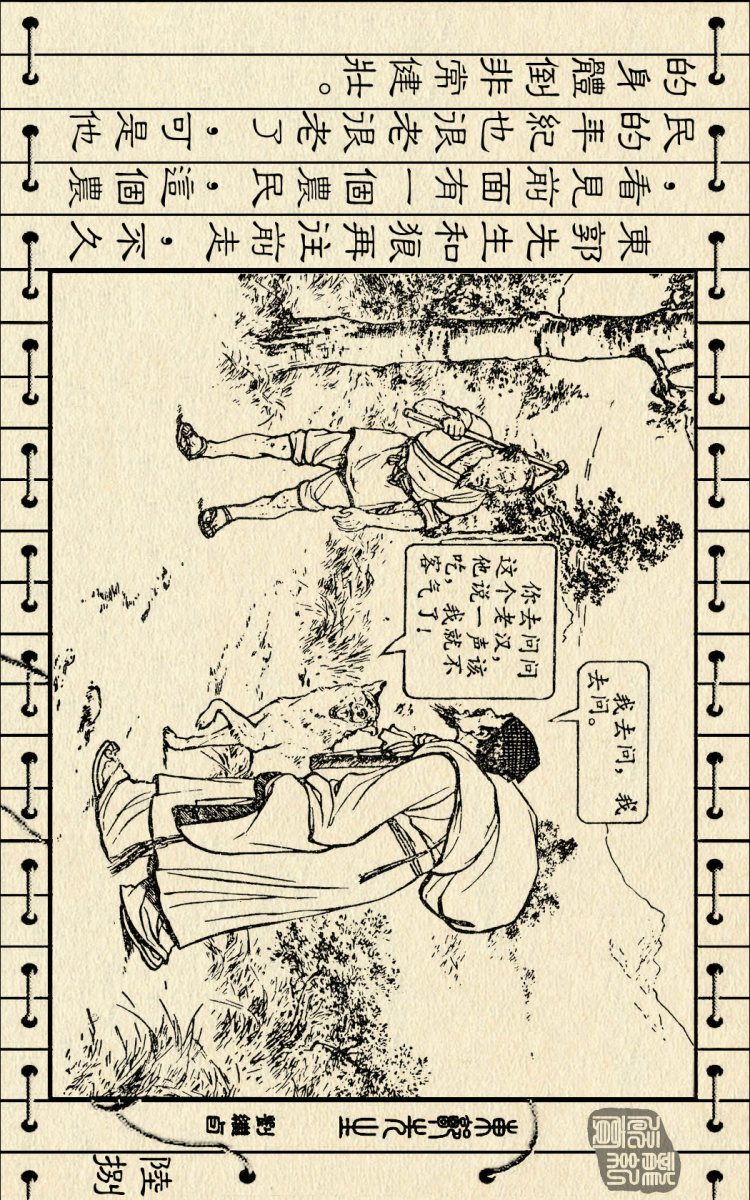 東郭先生
劉繼卣
陸捌
我去问，我
去问。
你去问问
这个老汉，
他说一声该
吃，我就不
客气了！
東郭先生和狼再往前走，不久
，看見前面有一個農民，這個農
民的年紀也很老很老了，可是他
的身體倒非常健壯。